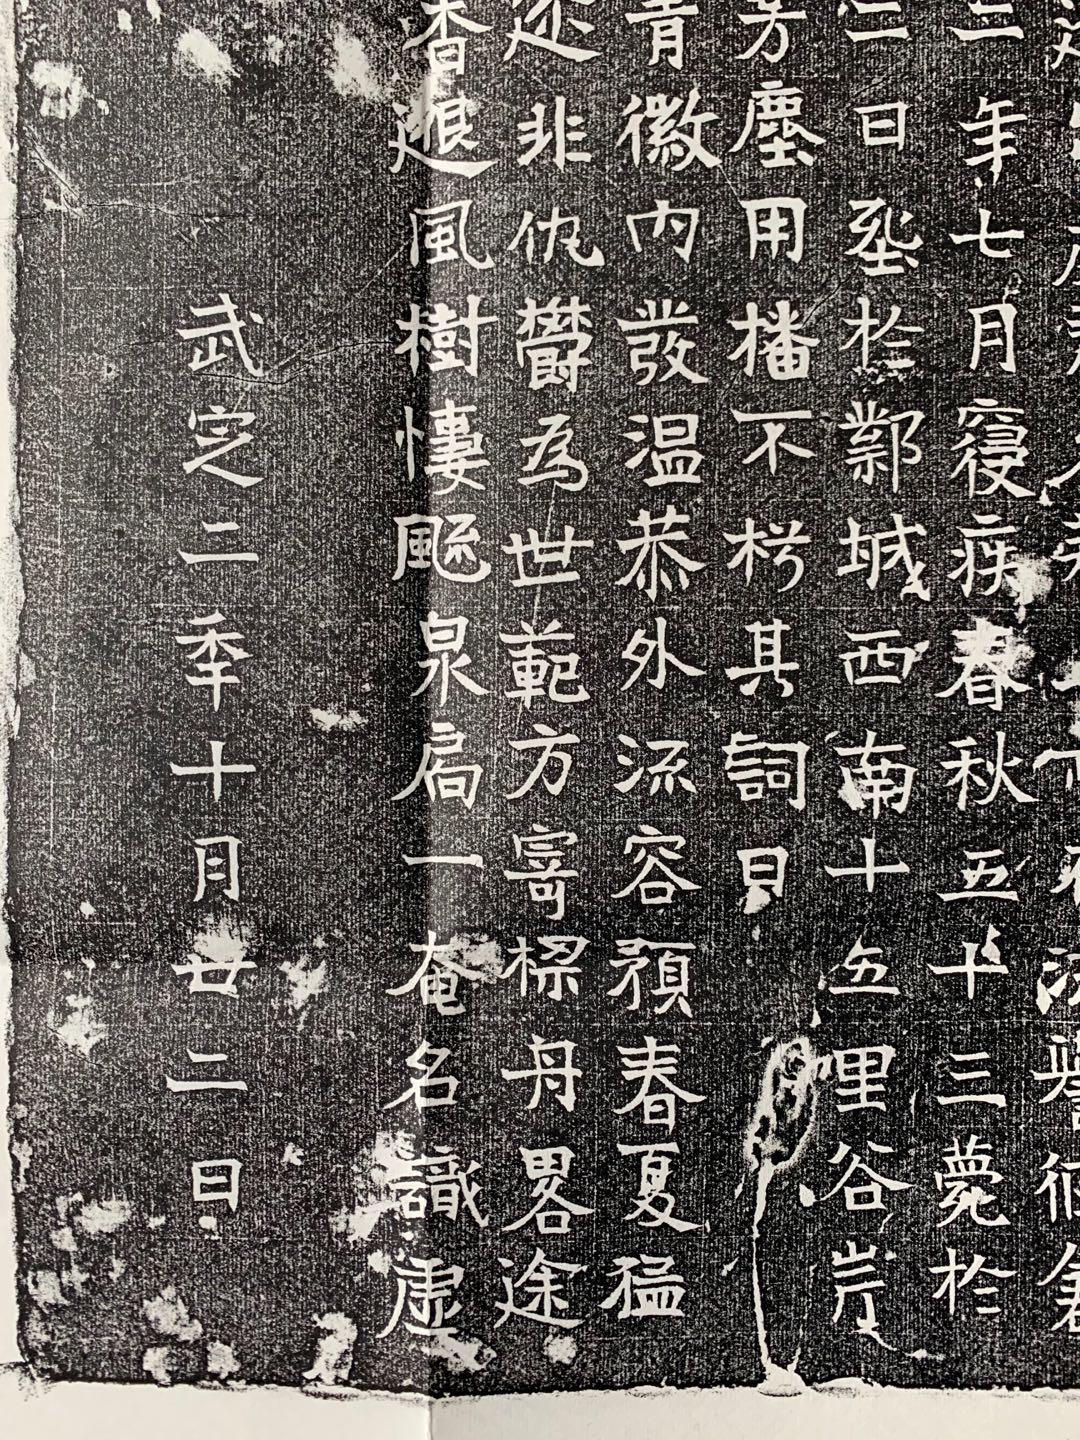 三年七月寢疾春秋五十三薨於
二日埊於鄴城西南十五里谷岸
芳塵用播不朽其詞曰
青徽內發温恭外流容頯春夏猛
還非仇欝為世範方寄樑舟畧途
杳遐風樹悽颷泉扃一奄名識虛
武定二年十月廿二日